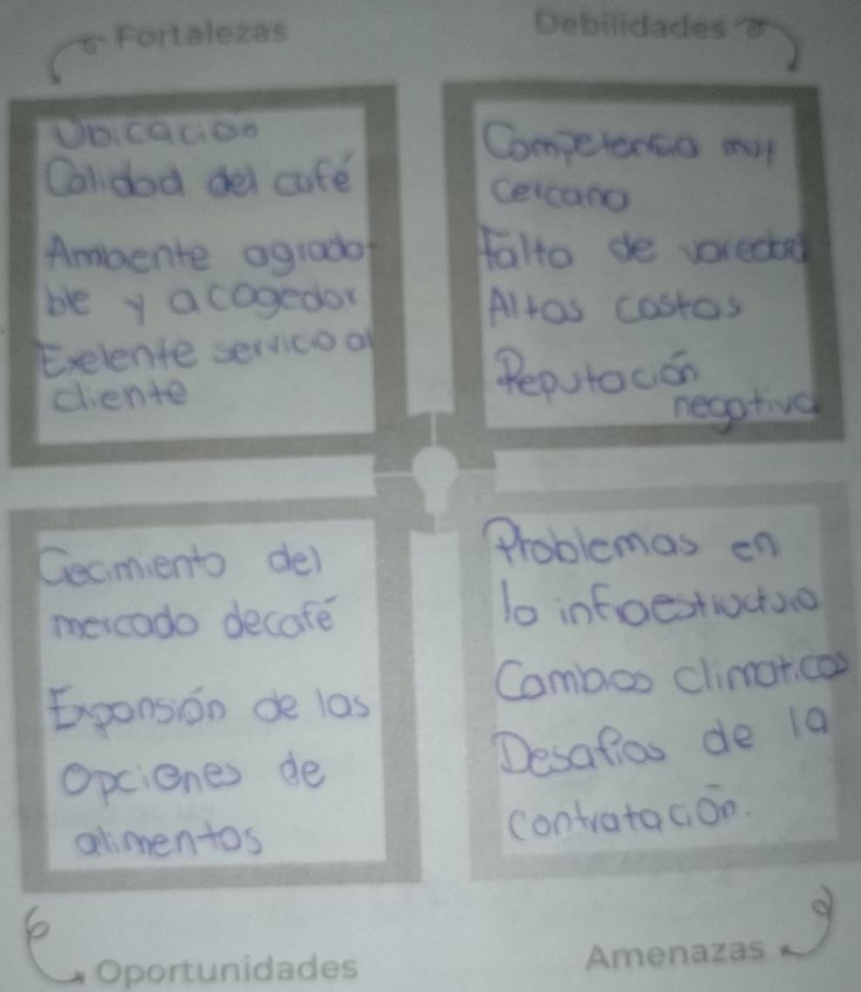 Fortalezas
Ubicación
Calidad del café
Ambiente agrada
ble y acogedor
Exelente servico al
cliente
Debilidades
Competencia muy
cercana
Falta de varedad
Altos costos
Reputación
negativa
Cecimiento del
mercado decafé
Expansión de las
Opciones de
alimentos
Oportunidades
Problemas en
la infraestructura
Cambios climaticos
Desafios de la
contratación.
Amenazas